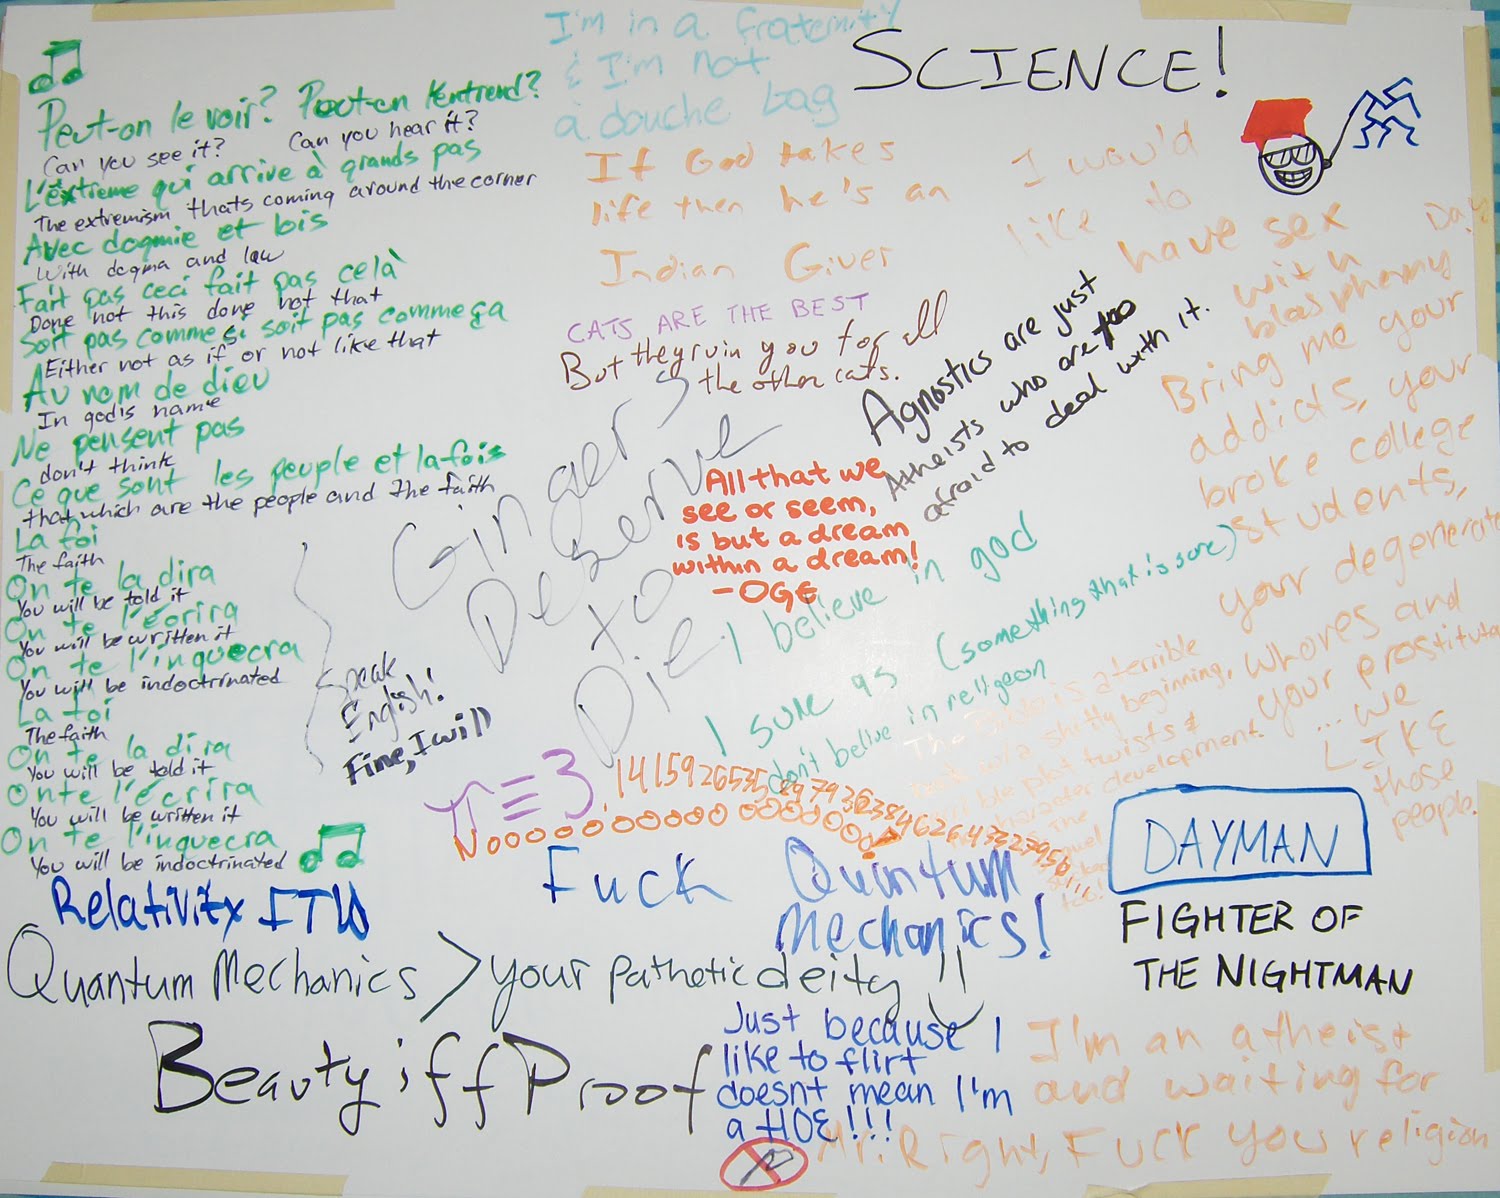 Peut-on le voir? Peut-on l'entrend?
Can you see it? Can you hear it?
L'extreme qui arrive à grands pas
The extremism thats coming around the corner
Avec dogmie et lois
With dogma and law
Fait pas ceci fait pas celà
Done not this done not that
Soit pas comme si soit pas comme ça
Either not as if or not like that
Au nom de dieu
In god's name
Ne pensent pas
don't think
Ce que sont les peuple et la fois
that which are the people and the faith
La foi
The faith
On te la dira
You will be told it
On te l'écrira
You will be written it
On te l'inquecra
You will be indoctrinated
La foi
The faith
On te la dira
You will be told it
On te l'écrira
You will be written it
On te l'inquecra
You will be indoctrinated
Speak
English!
Fine, I will
I'm in a fraternity
& I'm not
a douche bag
SCIENCE!
If God takes
life then he's an
Indian Giver
CATS ARE THE BEST
But they ruin you for all
the other cats.
I would
like to
have sex
with
blasphemy
Day
Agnostics are just
Atheists who are too
afraid to deal with it.
Gingers
Deserve
to
Die
All that we
see or seem,
is but a dream
within a dream!
-OGE
I believe in god
I sure as (something that is sure)
don't belive in religeon
Bring me your
addicts, your
broke college
students,
your degenerate
whores and
your prostitutes
... we
LIKE
those
people.
The is a terrible
shitty beginning,
plot twists &
character development.
π ≡ 3.14159265358979363846264332795
Noooooooooooooooooo
Fuck Quintum
Mechanics!
DAYMAN
FIGHTER OF
THE NIGHTMAN
Relativity FTW
Quantum Mechanics > your pathetic deity !!
Beauty iff Proof
Just because I
like to flirt
doesnt mean I'm
a HOE!!!
I'm an atheist
and waiting for
Mr. Right, Fuck you religion